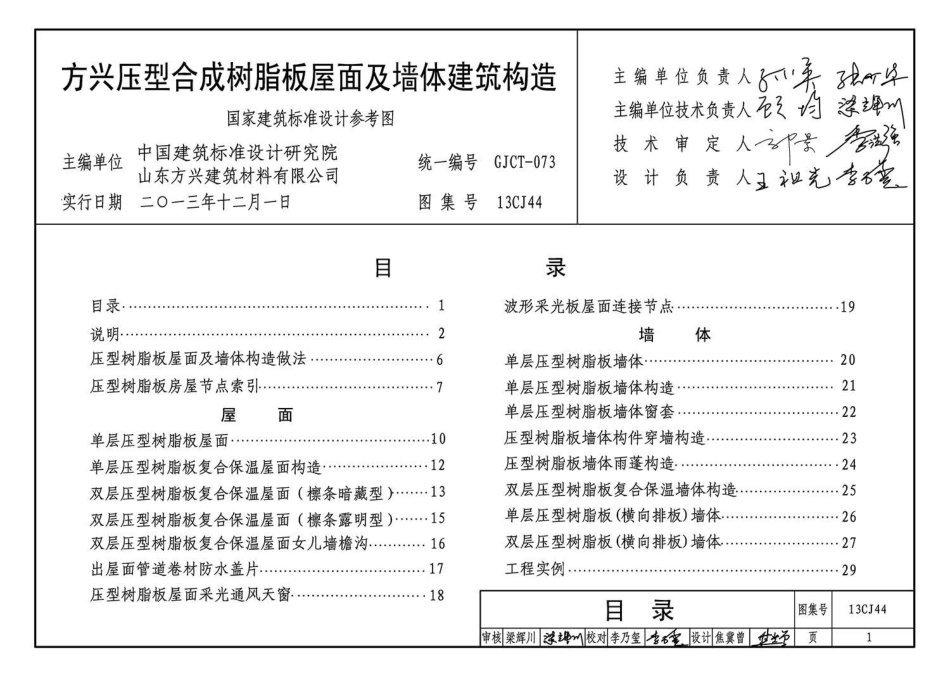 方兴压型合成树脂板屋面及墙体建筑构造
国家建筑标准设计参考图
主编单位 中国建筑标准设计研究院
山东方兴建筑材料有限公司
统一编号 GJCT-073
实行日期 二〇一三年十二月一日
图集号 13CJ44
主编单位负责人
主编单位技术负责人
技术审定人
设计负责人
目录
目录 1
说明 2
压型树脂板屋面及墙体构造做法 6
压型树脂板房屋节点索引 7
屋面
单层压型树脂板屋面 10
单层压型树脂板复合保温屋面构造 12
双层压型树脂板复合保温屋面(檩条暗藏型) 13
双层压型树脂板复合保温屋面(檩条露明型) 15
双层压型树脂板复合保温屋面女儿墙檐沟 16
出屋面管道卷材防水盖片 17
压型树脂板屋面采光通风天窗 18
波形采光板屋面连接节点 19
墙体
单层压型树脂板墙体 20
单层压型树脂板墙体构造 21
单层压型树脂板墙体窗套 22
压型树脂板墙体构件穿墙构造 23
压型树脂板墙体雨蓬构造 24
双层压型树脂板复合保温墙体构造 25
单层压型树脂板(横向排板)墙体 26
双层压型树脂板(横向排板)墙体 27
工程实例 29
目录 图集号 13CJ44
审核 梁辉川 校对 李乃玺 设计 焦冀曾 页 1